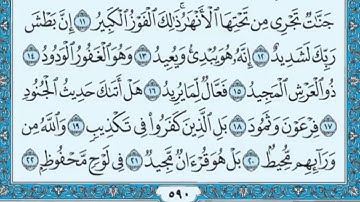 جَنَّٰتٌ تَجْرِى مِن تَحْتِهَا ٱلْأَنْهَٰرُ ۚ ذَٰلِكَ ٱلْفَوْزُ ٱلْكَبِيرُ ١١ إِنَّ بَطْشَ
رَبِّكَ لَشَدِيدٌ ١٢ إِنَّهُۥ هُوَ يُبْدِئُ وَيُعِيدُ ١٣ وَهُوَ ٱلْغَفُورُ ٱلْوَدُودُ ١٤
ذُو ٱلْعَرْشِ ٱلْمَجِيدُ ١٥ فَعَّالٌ لِّمَا يُرِيدُ ١٦ هَلْ أَتَىٰكَ حَدِيثُ ٱلْجُنُودِ
١٧ فِرْعَوْنَ وَثَمُودَ ١٨ بَلِ ٱلَّذِينَ كَفَرُوا۟ فِى تَكْذِيبٍ ١٩ وَٱللَّهُ مِن
وَرَآئِهِم مُّحِيطٌۢ ٢٠ بَلْ هُوَ قُرْءَانٌ مَّجِيدٌ ٢١ فِى لَوْحٍ مَّحْفُوظٍۭ ٢٢
٥٩٠